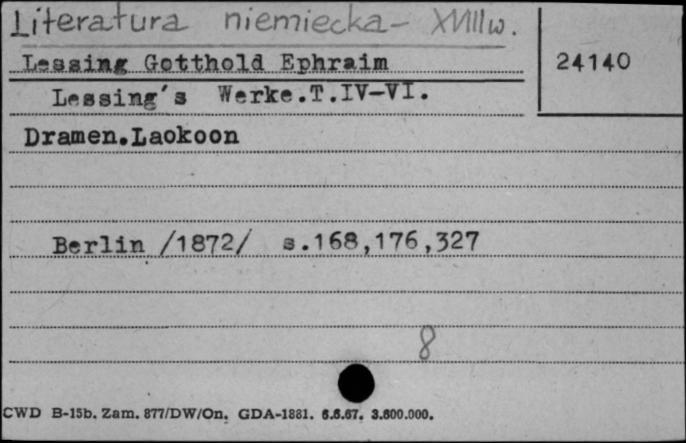 Literatura niemiecka - XVIII w.
Lessing Gotthold Ephraim
24140
Lessing's Werke.T.IV-VI.
Dramen.Laokoon
Berlin /1872/ s.168,176,327
8
CWD B-15b. Zam. 877/DW/On. GDA-1881. 6.6.67. 3.600.000.